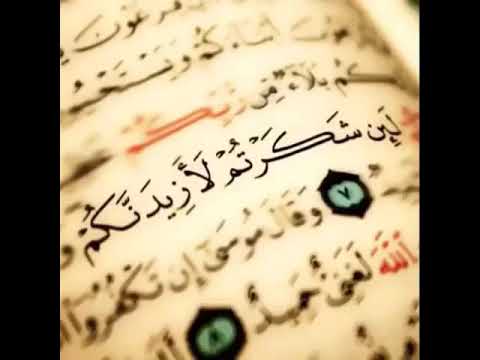 فِرْعَوْنَ
أَبْنَاءَكُمْ وَيَسْتَحْيُونَ
كُم بَلَاءٌ مِّن رَّبِّكُمْ
لَئِن شَكَرْتُمْ لَأَزِيدَنَّكُمْ
٧ وَقَالَ مُوسَىٰ إِن تَكْفُرُوا
اللَّهَ لَغَنِيٌّ حَمِيدٌ ٨